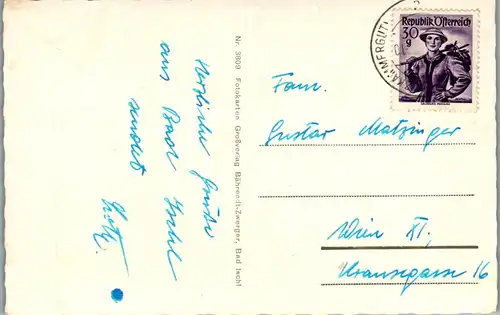 Herzliche Grüße
aus Bad Ischl
sendet
Nr. 3809 Fotokarten Großverlag Bährendt-Zwerger, Bad Ischl
Republik Österreich
30
g
Fam.
Gustav Matzinger
Wien XI,
Kransegasse 16